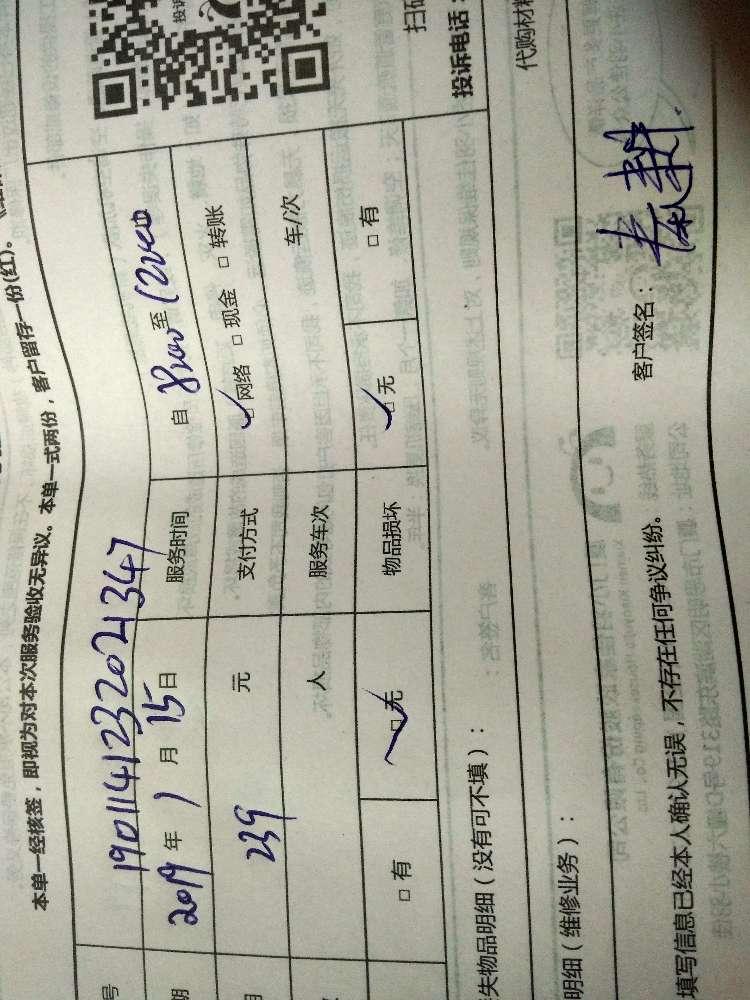 本单一经核签，即视为对本次服务验收无异议。本单一式两份，客户留存一份(红)。
号 1901141232021347
期 2019年1月15日 服务时间 自 8:00 至 12:00
239 元 支付方式 ☑网络 □现金 □转账
人 服务车次 车/次
□有 ☑无 物品损坏 ☑无 □有
失物品明细（没有可不填）：
明细（维修业务）：
填写信息已经本人确认无误，不存在任何争议纠纷。
客户签名：
投诉
扫码
投诉电话：
代购材料